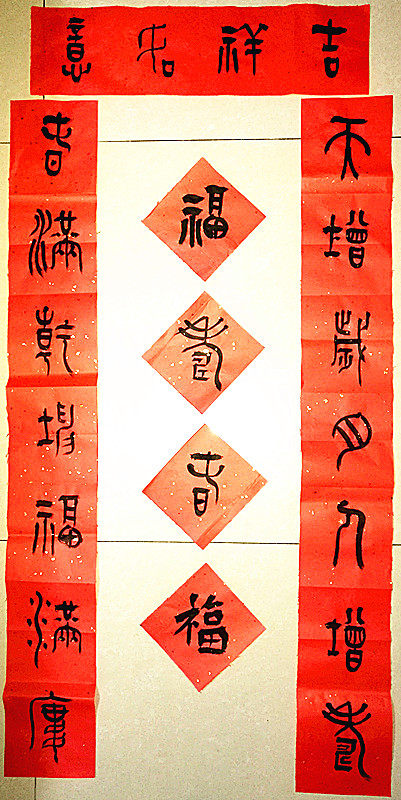 吉祥如意
天增歲月人增壽
春滿乾坤福滿庫
福
壽
春
福